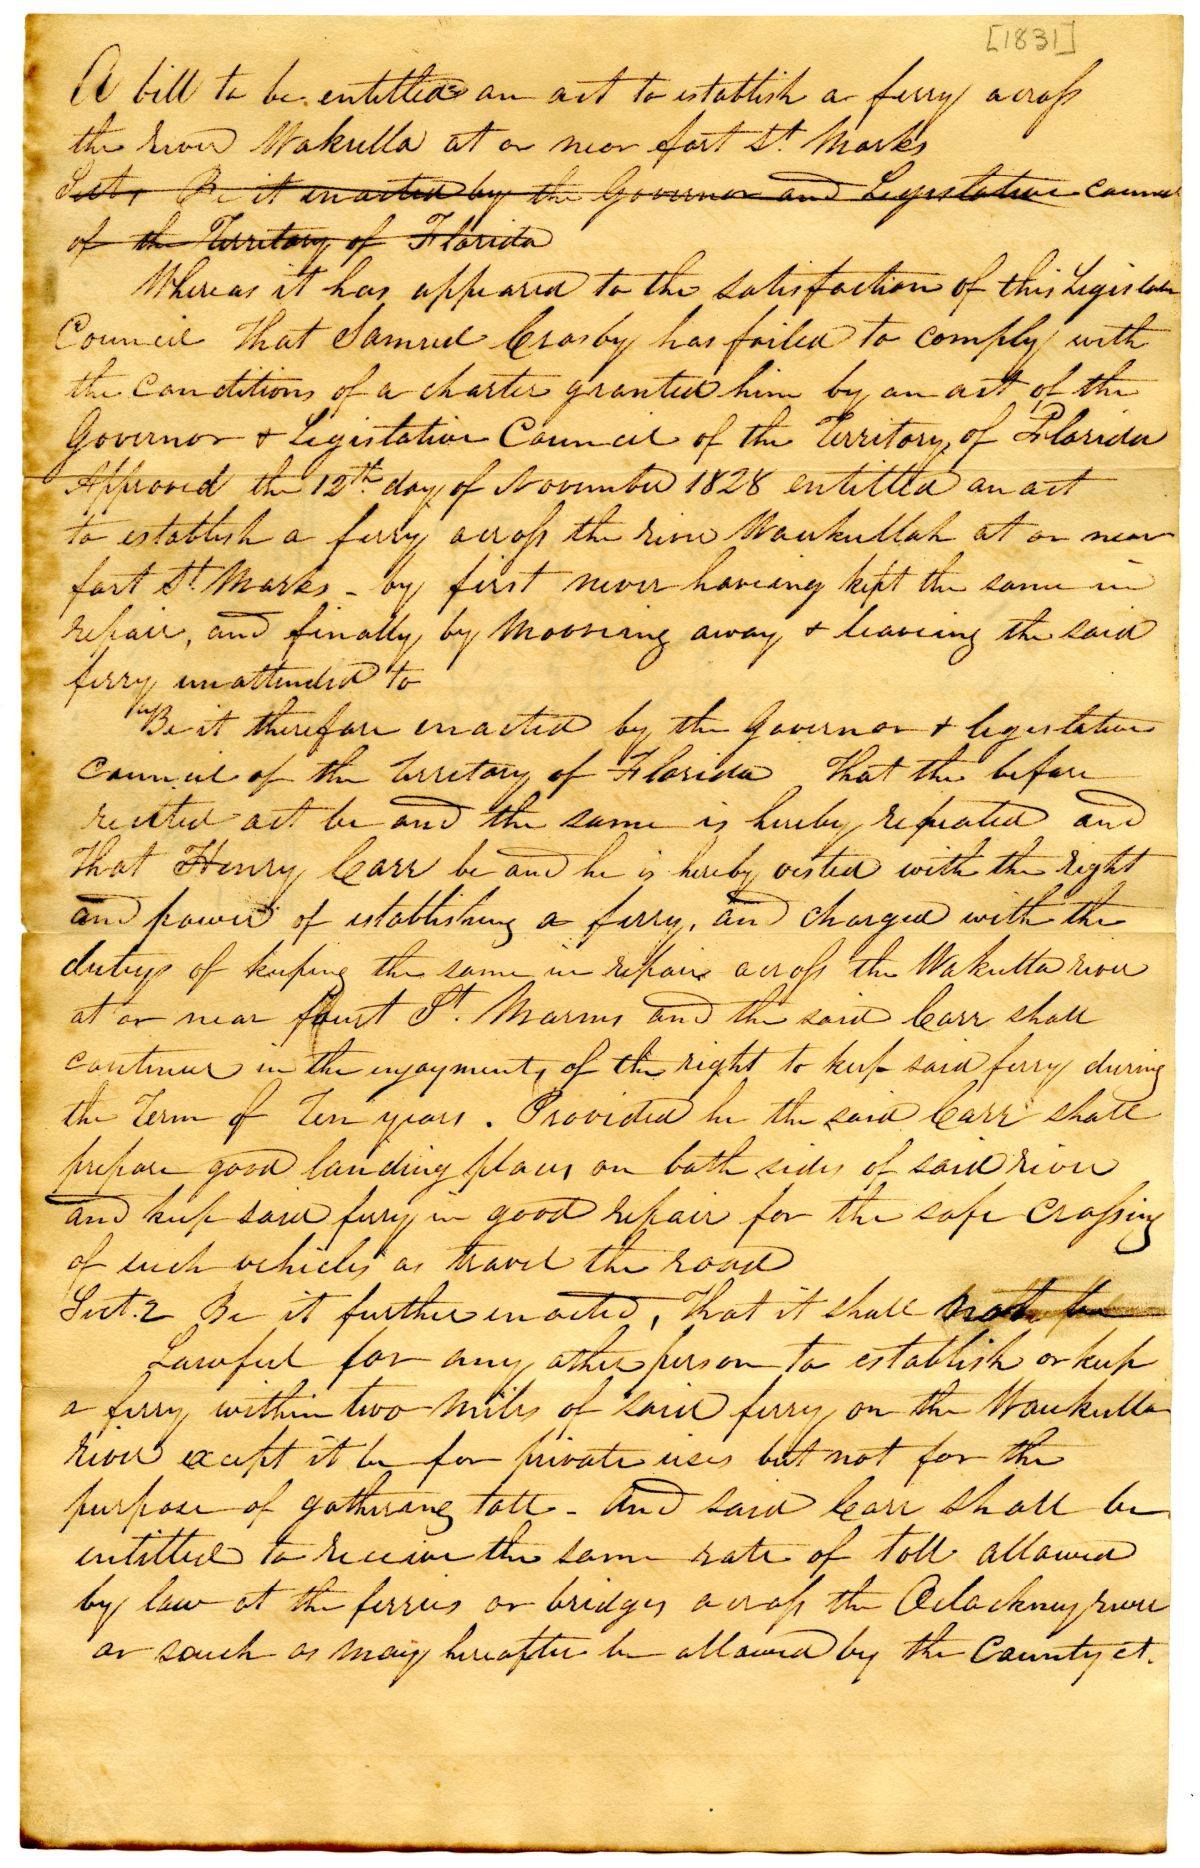 [1831]
A bill to be entitled an act to establish a ferry across
the river Wakulla at or near fort St. Marks
Sect 1 Be it enacted by the Governor and Legislative Council
of the Territory of Florida
Whereas it has appeared to the satisfaction of this Legislative
Council That Samuel Crosby has failed to comply with
the conditions of a charter granted him by an act of the
Governor & Legislative Council of the Territory of Florida
Approved the 12th. day of November 1828 entitled an act
to establish a ferry across the river Waukullah at or near
fort St. Marks - by first never haveing kept the same in
repair, and finally by Mooveing away & leaveing the said
ferry unattended to
Be it therefore enacted by the Governor & legislative
Council of the Territory of Florida That the before
recited act be and the same is hereby repealed and
That Henry Carr be and he is hereby vested with the right
and power of establishing a ferry, and charged with the
dutys of keeping the same in repair across the Wakulla river
at or near fourt St. Marks and the said Carr shall
continue in the enjoyment of the right to keep said ferry during
the Term of Ten years. Provided he the said Carr shall
prepare good landing places on both sides of said river
and keep said ferry in good repair for the safe crossing
of such vehicles as travel the road
Sect. 2 Be it further enacted, That it shall not be
Lawful for any other person to establish or keep
a ferry within two miles of said ferry on the Waukulla
river except it be for private uses but not for the
purpose of gathering toll - And said Carr shall be
entitled to receive the same rate of toll allowed
by law at the ferries or bridges across the Oclockney river
or souch as may hereafter be allowed by the County ct.